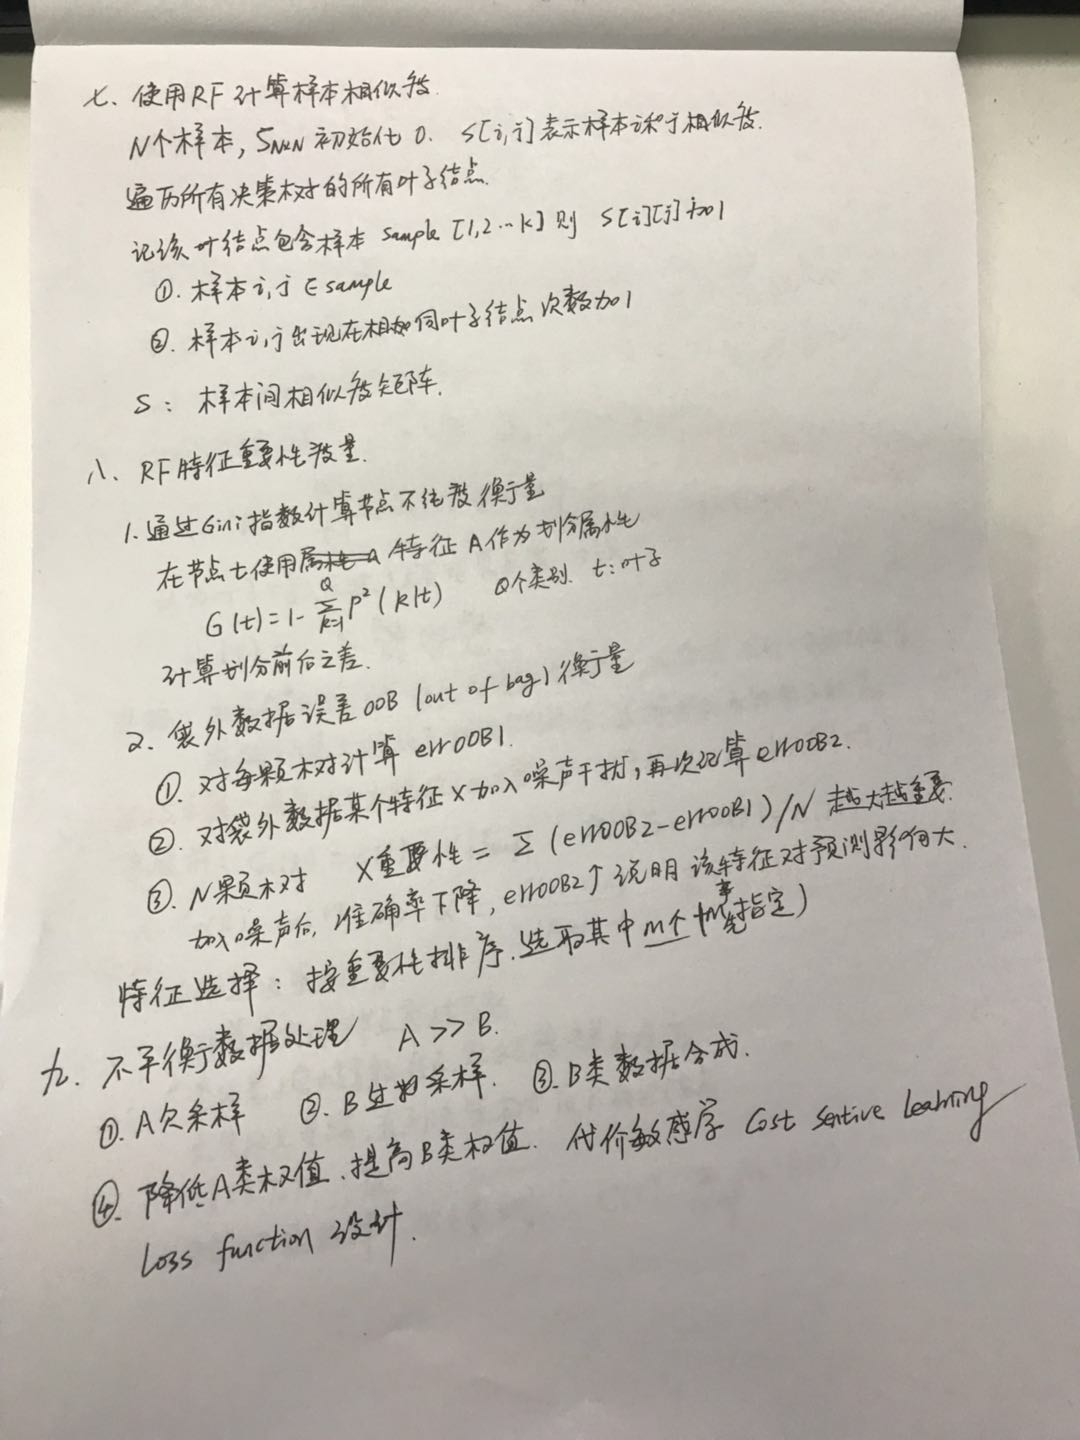 七、使用RF计算样本相似度.
N个样本, S_{N×N} 初始化 0. S[i,j]表示样本i和j相似度.
遍历所有决策树的所有叶子结点.
记该叶结点包含样本 sample [1,2…k] 则 S[i][j]加1
①. 样本i,j ∈ sample
②. 样本i,j出现在相同叶子结点次数加1
S: 样本间相似度矩阵.
八、RF特征重要性度量.
1.通过Gini指数计算节点不纯度衡量
在节点t使用特征A作为划分属性
G(t)=1-\sum_{k=1}^{Q}P²(k|t) Q个类别. t:叶子
计算划分前后之差.
2、袋外数据误差OOB(out of bag)衡量
①. 对每颗树计算errOOB1.
②. 对袋外数据某个特征X加入噪声干扰,再次记算errOOB2.
③. N颗树 X重要性= Σ(errOOB2-errOOB1)/N 越大越重要.
加入噪声后,准确率下降,errOOB2↑说明该特征对预测影响大.
特征选择: 按重要性排序.选取其中m个(m事先指定)
九、不平衡数据处理 A>>B.
①. A欠采样 ②. B过采样. ③. B类数据合成.
④. 降低A类权值.提高B类权值. 代价敏感学 Cost sentive learning
Loss function 设计.